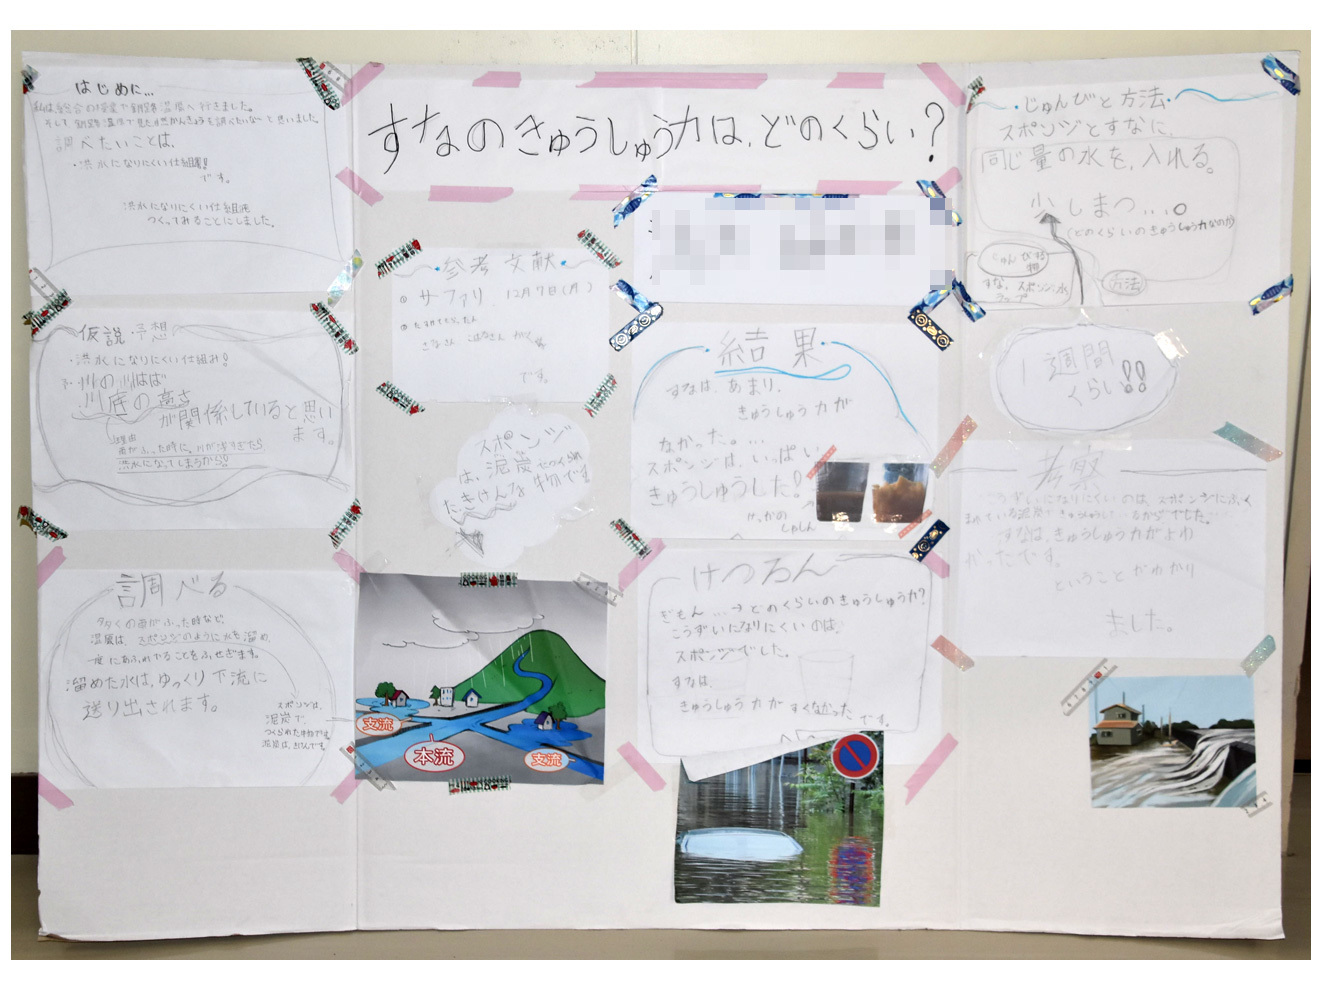 すなのきゅうしゅう力は、どのくらい?
はじめに…
私は総合の授業で釧路湿原へ行きました。
調べたいことは、
・洪水になりにくい仕組み!!
です。
洪水になりにくい仕組を
つくってみることにしました。
仮説・予想
・洪水になりにくい仕組み!
川の川はば
川底の高さ
が関係していると思い
ます。
理由
雨がふった時に、川が浅すぎたら
洪水になってしまうから!!
調べる
多くの雨がふった時など、
湿原は、スポンジのように水を溜め、
一度にあふれでることをふせぎます。
溜めた水は、ゆっくり下流に
送り出されます。
スポンジは、
泥炭で、
参考文献
サーファリ 12月7日(月)
です。
スポンジ
は、泥炭
結果
すなは、あまり、
きゅうしゅう力が
なかった。…
スポンジは、いっぱい
きゅうしゅうした!
けっかの
しゃしん
けつろん
ぎもん…→どのくらいのきゅうしゅう力?
こうずいになりにくいのは、
スポンジでした。
すなは、
きゅうしゅう力が すくなかった
です。
支流
本流
支流
じゅんびと方法
スポンジとすなに、
同じ量の水を、入れる。
少しまつ…。
(どのくらいのきゅうしゅう力なのか)
じゅんび物
すな、スポンジ、水
コップ
方法
1週間
くらい!!
考察
こうずいになりにくいのは、スポンジにふく
まれている泥炭できゅうしゅうしているからでした。
すなは、きゅうしゅう力がよわ
かったです。
ということがわかり
ました。